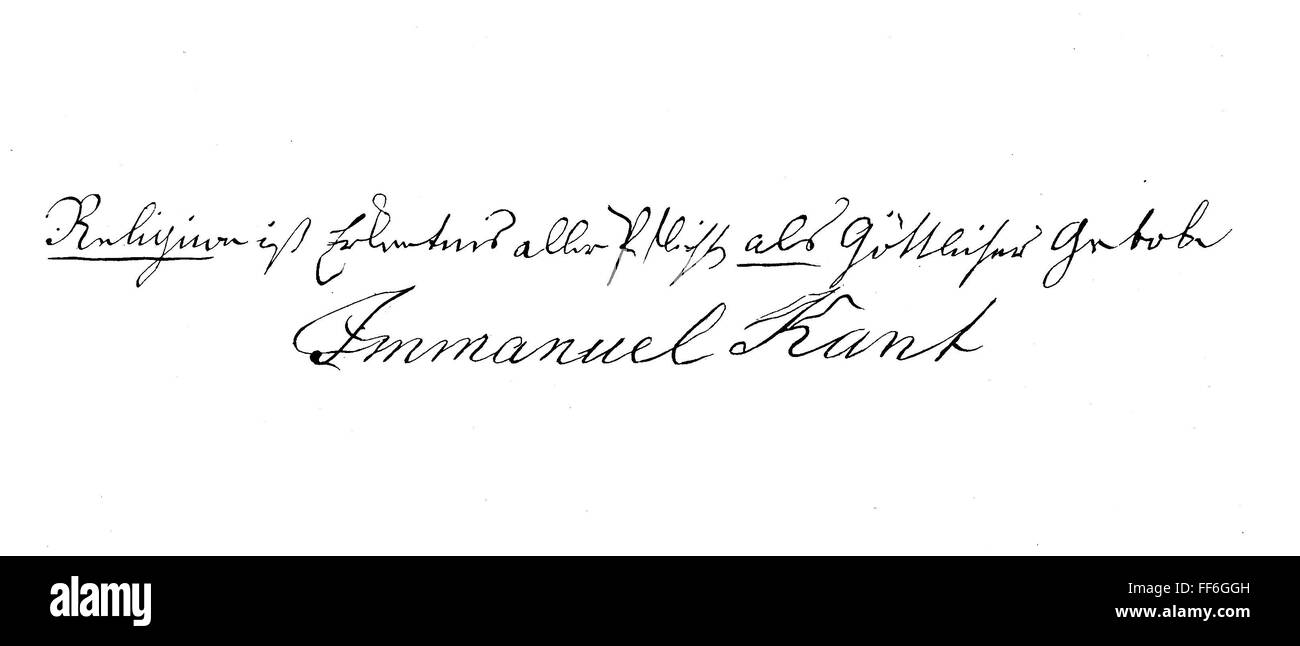 Religion ist Erkentnis aller Pflicht als Göttlicher Gebote
Immanuel Kant
alamy
Image ID: FF6GGH
www.alamy.com